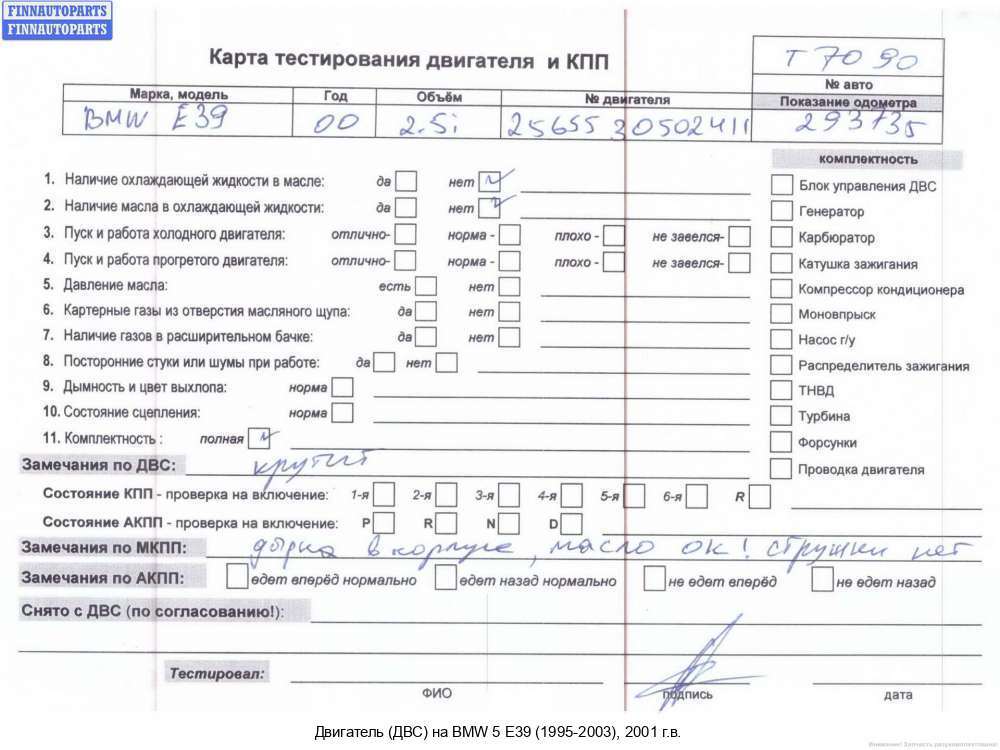 FINNAUTOPARTS
FINNAUTOPARTS
Карта тестирования двигателя и КПП
T 7090
№ авто
Марка, модель Год Объём № двигателя Показание одометра
BMW E39 00 2.5i 25655 30502411 293735
комплектность
1. Наличие охлаждающей жидкости в масле: да нет Блок управления ДВС
2. Наличие масла в охлаждающей жидкости: да нет Генератор
3. Пуск и работа холодного двигателя: отлично- норма - плохо - не завелся- Карбюратор
4. Пуск и работа прогретого двигателя: отлично- норма - плохо - не завелся- Катушка зажигания
5. Давление масла: есть нет Компрессор кондиционера
6. Картерные газы из отверстия масляного щупа: да нет Моновпрыск
7. Наличие газов в расширительном бачке: да нет Насос г/у
8. Посторонние стуки или шумы при работе: да нет Распределитель зажигания
9. Дымность и цвет выхлопа: норма ТНВД
10. Состояние сцепления: норма Турбина
11. Комплектность : полная Форсунки
Замечания по ДВС: крутит Проводка двигателя
Состояние КПП - проверка на включение: 1-я 2-я 3-я 4-я 5-я 6-я R
Состояние АКПП - проверка на включение: P R N D
Замечания по МКПП: дырка в корпусе, масло ок! стружки нет
Замечания по АКПП: едет вперёд нормально едет назад нормально не едет вперёд не едет назад
Снято с ДВС (по согласованию!):
Тестировал:
ФИО подпись дата
Двигатель (ДВС) на BMW 5 E39 (1995-2003), 2001 г.в.